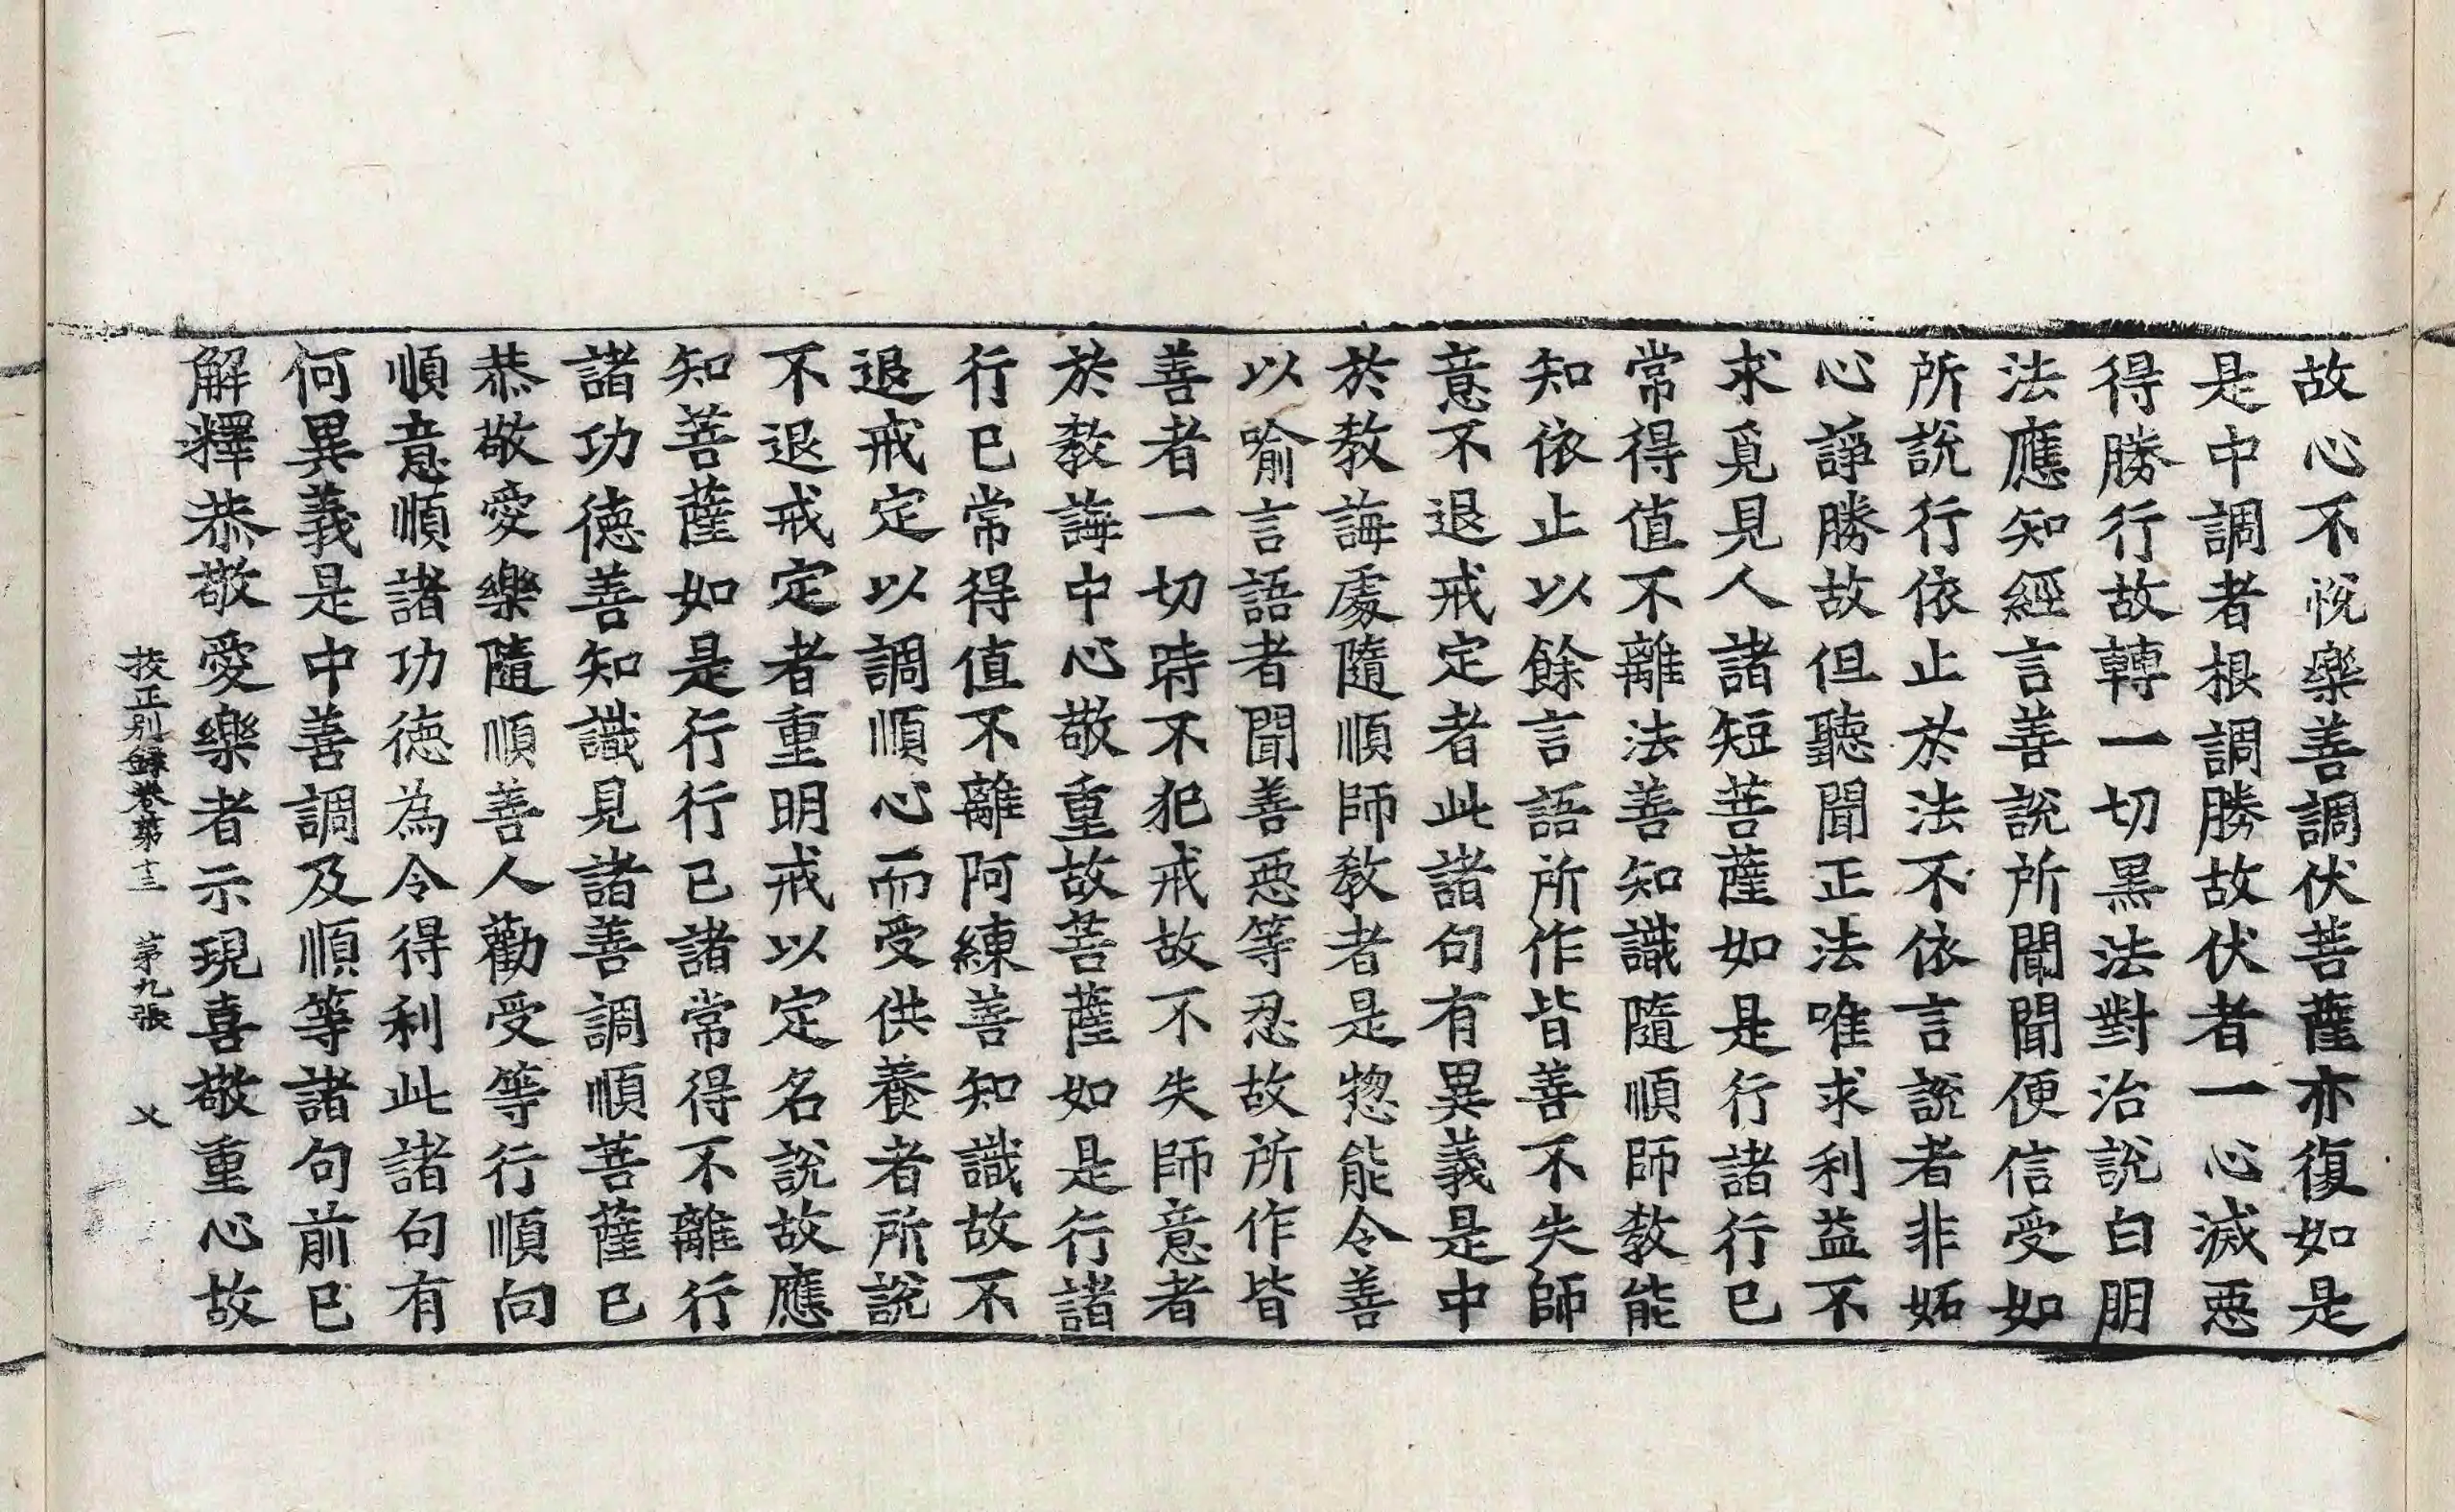 故心不悅樂善調伏菩薩亦復如是
是中調者根調勝故伏者一心滅惡
得勝行故轉一切黑法對治說白朋
法應知經言善說所聞聞便信受如
所說行依止於法不依言說者非妬
心諍勝故但聽聞正法唯求利益不
求覓見人諸短菩薩如是行諸行已
常得值不離法善知識隨順師教能
知依止以餘言語所作皆善不失師
意不退戒定者此諸句有異義是中
於教誨處隨順師教者是惣能令善
以喻言語者聞善惡等忍故所作皆
善者一切時不犯戒故不失師意者
於教誨中心敬重故菩薩如是行諸
行已常得值不離阿練善知識故不
退戒定以調順心而受供養者所說
不退戒定者重明戒以定名說故應
知菩薩如是行行已諸常得不離行
諸功德善知識見諸善調順菩薩已
恭敬愛樂隨順善人勸受等行順向
順意順諸功德為令得利此諸句有
何異義是中善調及順等諸句前已
解釋恭敬愛樂者示現喜敬重心故
挍正別録卷第十三 第九張 乂